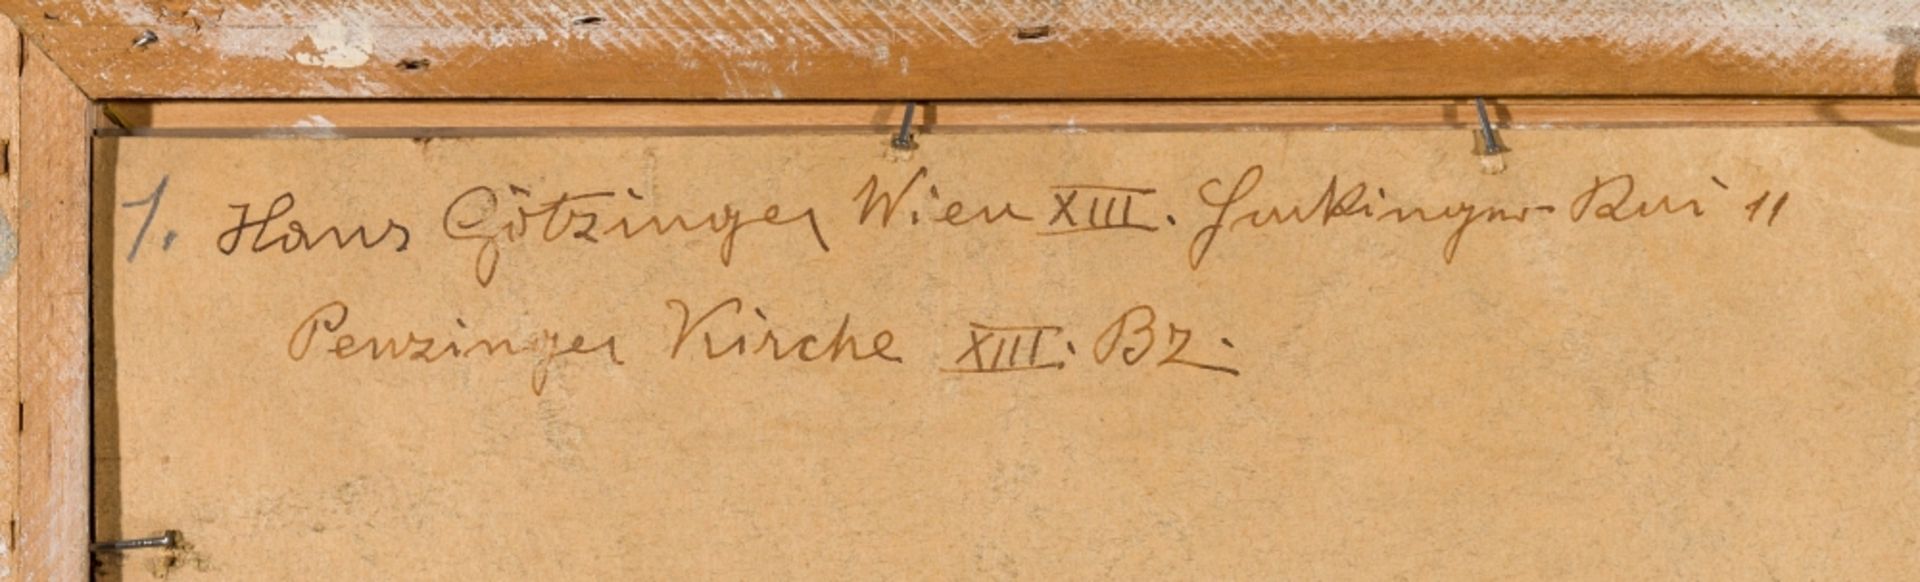 1. Hans Götzinger Wien XIII. 11
Penzinger Kirche XIII. Bz.